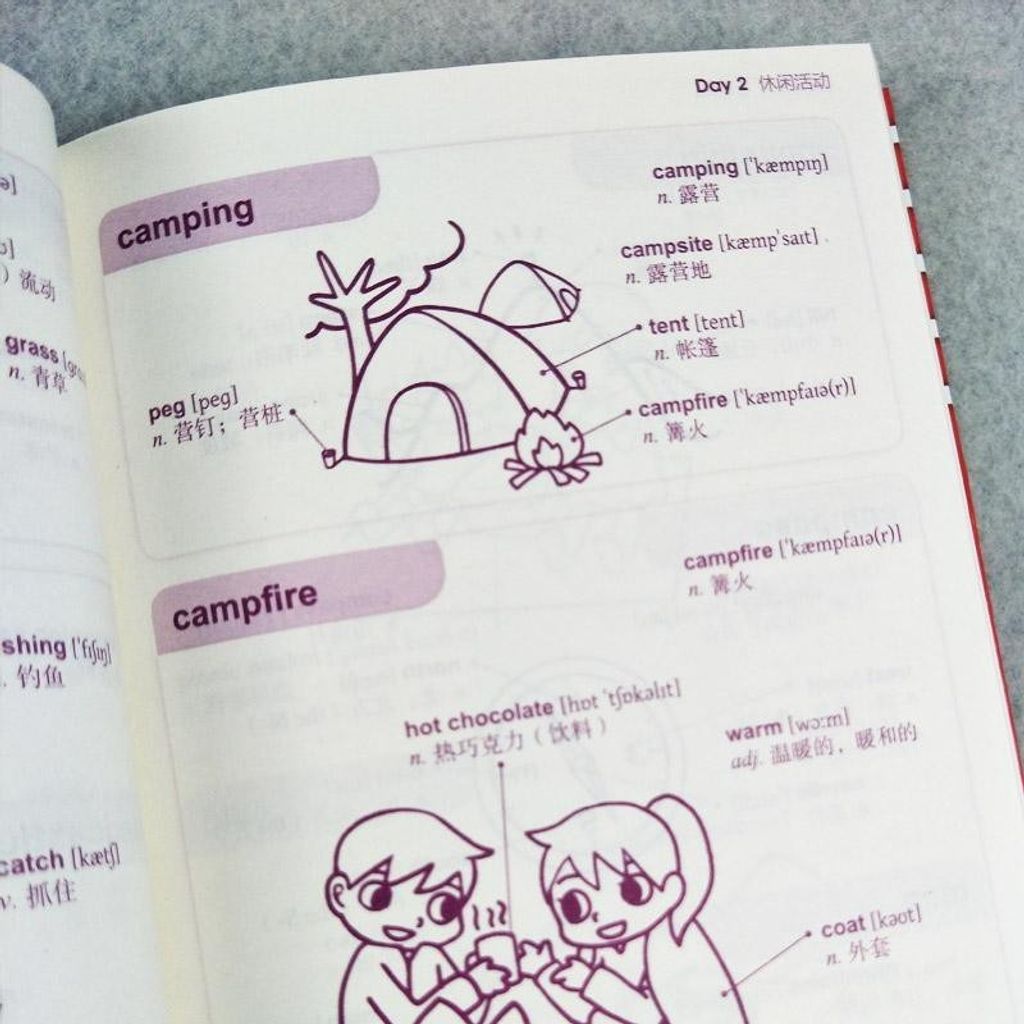 流动
grass
n. 青草
钓鱼
catch [kætʃ]
v. 抓住
Day 2 休闲活动
camping
camping [ˈkæmpɪŋ]
n. 露营
campsite [kæmpˈsaɪt]
n. 露营地
tent [tent]
n. 帐篷
peg [peg]
n. 营钉；营桩
campfire [ˈkæmpfaɪə(r)]
n. 篝火
campfire
campfire [ˈkæmpfaɪə(r)]
n. 篝火
hot chocolate [hɒt ˈtʃɒkəlɪt]
n. 热巧克力（饮料）
warm [wɔːm]
adj. 温暖的，暖和的
coat [kəʊt]
n. 外套